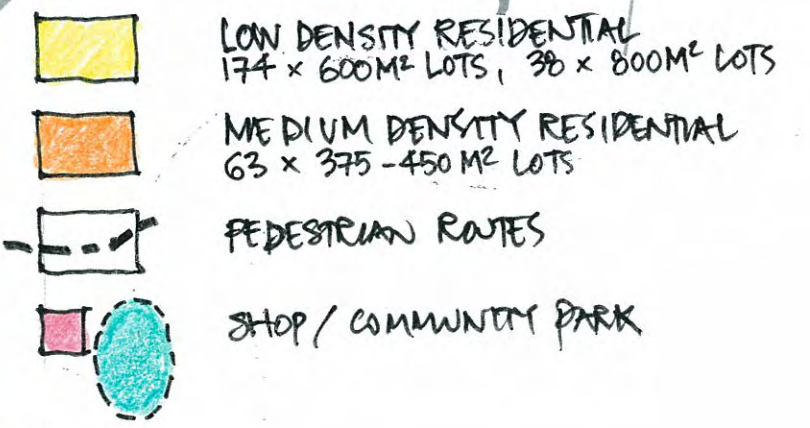 LOW DENSITY RESIDENTIAL
174 x 600M² LOTS, 38 x 800M² LOTS
MEDIUM DENSITY RESIDENTIAL
63 x 375-450 M² LOTS
PEDESTRIAN ROUTES
SHOP / COMMUNITY PARK